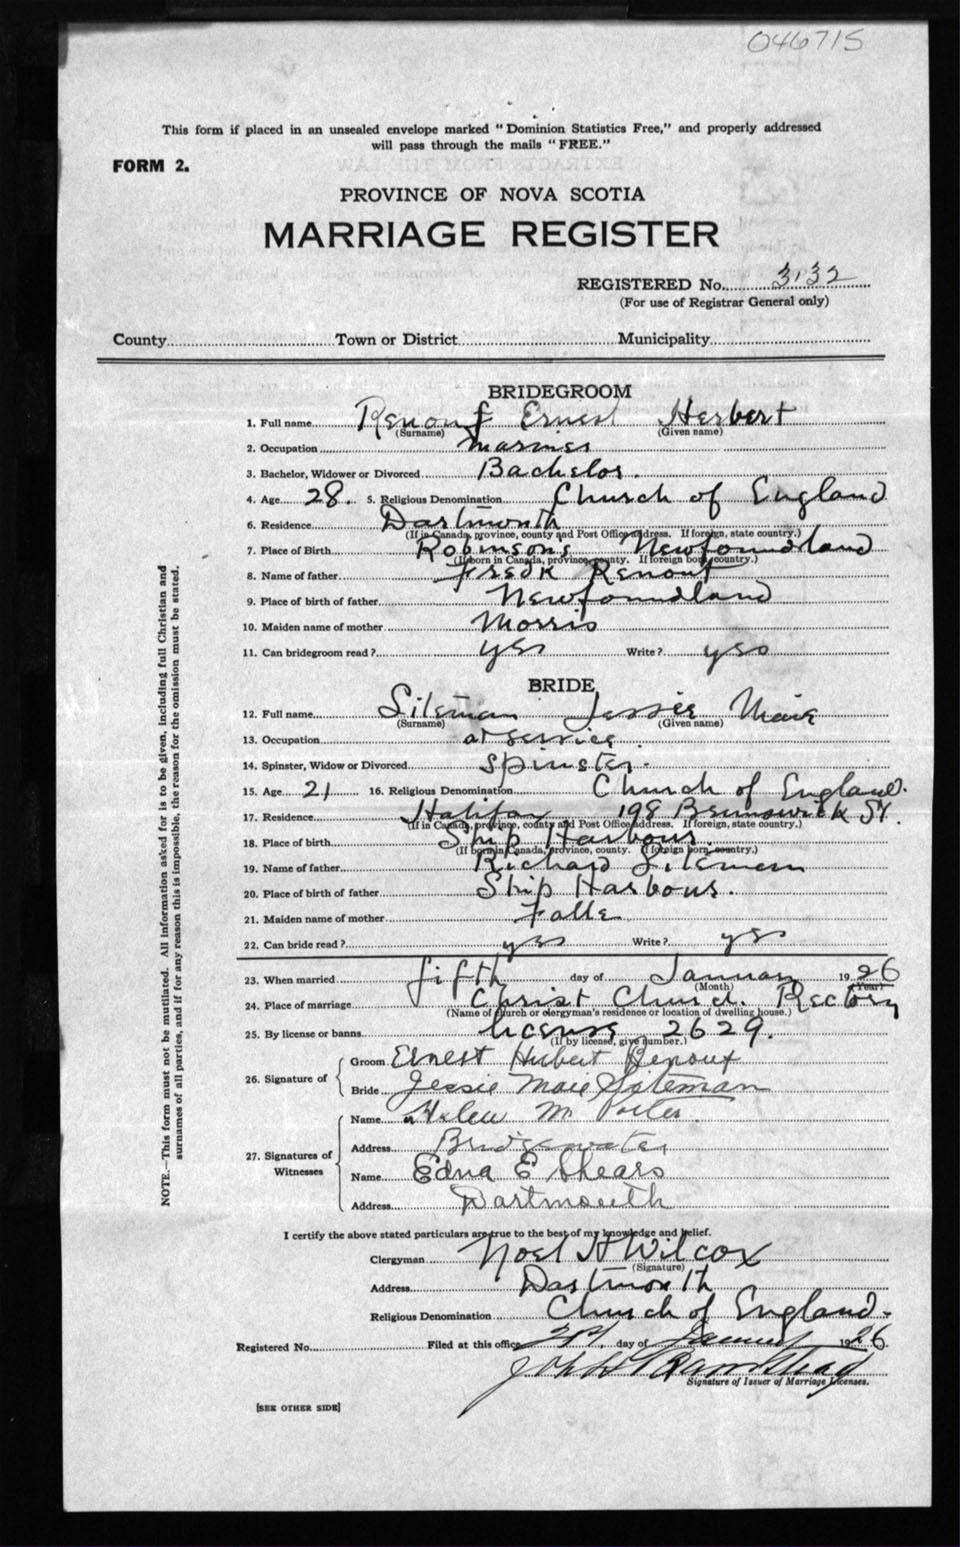 046715
This form if placed in an unsealed envelope marked "Dominion Statistics Free," and properly addressed
will pass through the mails "FREE."
FORM 2.
PROVINCE OF NOVA SCOTIA
MARRIAGE REGISTER
REGISTERED No. 3132
(For use of Registrar General only)
County Town or District Municipality
BRIDEGROOM
1. Full name Renouf Ernest Herbert
(Surname) (Given name)
2. Occupation Mariner
3. Bachelor, Widower or Divorced Bachelor.
4. Age 28. 5. Religious Denomination Church of England
6. Residence Dartmouth
(If in Canada, province, county and Post Office address. If foreign, state country.)
7. Place of Birth Robinsons Newfoundland
(If born in Canada, province, county. If foreign born, country.)
8. Name of father Fredk Renouf
9. Place of birth of father Newfoundland
10. Maiden name of mother Morris
11. Can bridegroom read? yes Write? yes
BRIDE
12. Full name Siteman Jessie Marie
(Surname) (Given name)
13. Occupation at service.
14. Spinster, Widow or Divorced Spinster.
15. Age 21 16. Religious Denomination Church of England.
17. Residence Halifax 198 Brunswick St.
(If in Canada, province, county and Post Office address. If foreign, state country.)
18. Place of birth Ship Harbour.
(If born in Canada, province, county. If foreign born, country.)
19. Name of father Richard Siteman
20. Place of birth of father Ship Harbour.
21. Maiden name of mother
22. Can bride read? yes Write? yes
23. When married fifth day of January 1926
(Month) (Year)
24. Place of marriage Christ Church Rectory
(Name of church or clergyman's residence or location of dwelling house.)
25. By license or banns license 2629.
(If by license, give number.)
26. Signature of Groom Ernest Hubert Renouf
Bride Jessie Mae Siteman
27. Signatures of Witnesses Name Helen M Porter
Address Bridgewater
Name Edna E Shears
Address Dartmouth
I certify the above stated particulars are true to the best of my knowledge and belief.
Clergyman Noel H Wilcox
(Signature)
Address Dartmouth
Religious Denomination Church of England.
Registered No. Filed at this office day of January 1926
Signature of Issuer of Marriage Licenses.
[SEE OTHER SIDE]
NOTE.—This form must not be mutilated. All information asked for is to be given, including full Christian and
surnames of all parties, and if for any reason this is impossible, the reason for the omission must be stated.